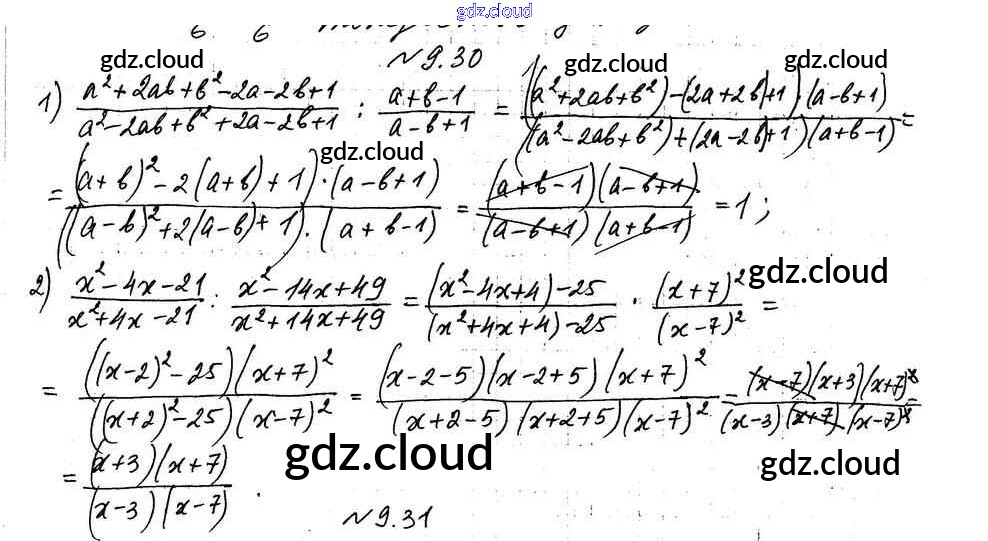 gdz.cloud
№ 9.30
gdz.cloud gdz.cloud gdz.cloud
1) (a²+2ab+b²-2a-2b+1)/(a²-2ab+b²+2a-2b+1) : (a+b-1)/(a-b+1) = ((a²+2ab+b²)-(2a+2b)+1)·(a-b+1)/((a²-2ab+b²)+(2a-2b)+1)(a+b-1) =
gdz.cloud
= ((a+b)²-2(a+b)+1)·(a-b+1)/((a-b)²+2(a-b)+1)·(a+b-1) = (a+b-1)(a-b+1)/(a-b+1)(a+b-1) = 1;
gdz.cloud
2) (x²-4x-21)/(x²+4x-21) : (x²-14x+49)/(x²+14x+49) = ((x²-4x+4)-25)/((x²+4x+4)-25) · (x+7)²/(x-7)² =
= ((x-2)²-25)(x+7)²/((x+2)²-25)(x-7)² = (x-2-5)(x-2+5)(x+7)²/(x+2-5)(x+2+5)(x-7)² = (x-7)(x+3)(x+7)²/(x-3)(x+7)(x-7)² =
gdz.cloud gdz.cloud
= (x+3)(x+7)/(x-3)(x-7).
№ 9.31